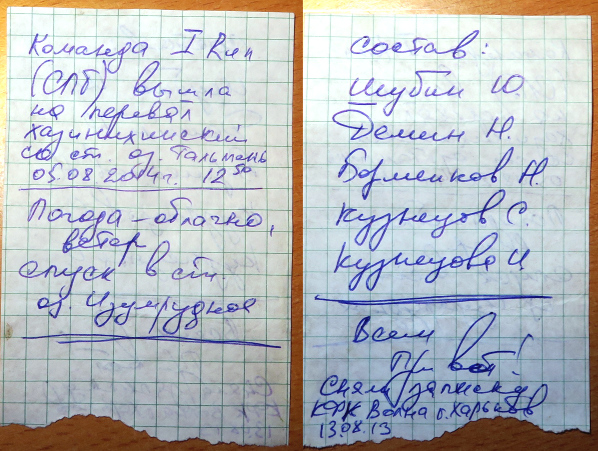 Команда I Run
(СПб) вышла
на перевал
со ст. оз. Тальмень
05.08 12 50
Погода - облачно,
ветер
спуск в ст
оз. Изумрудное
Состав:
Шубин Ю.
Демин Н.
Н.
Кузнецов С.
Кузнецова И.
Всем
Привет!
Сняли записку
КФК Волна г. Харьков
13.08.13